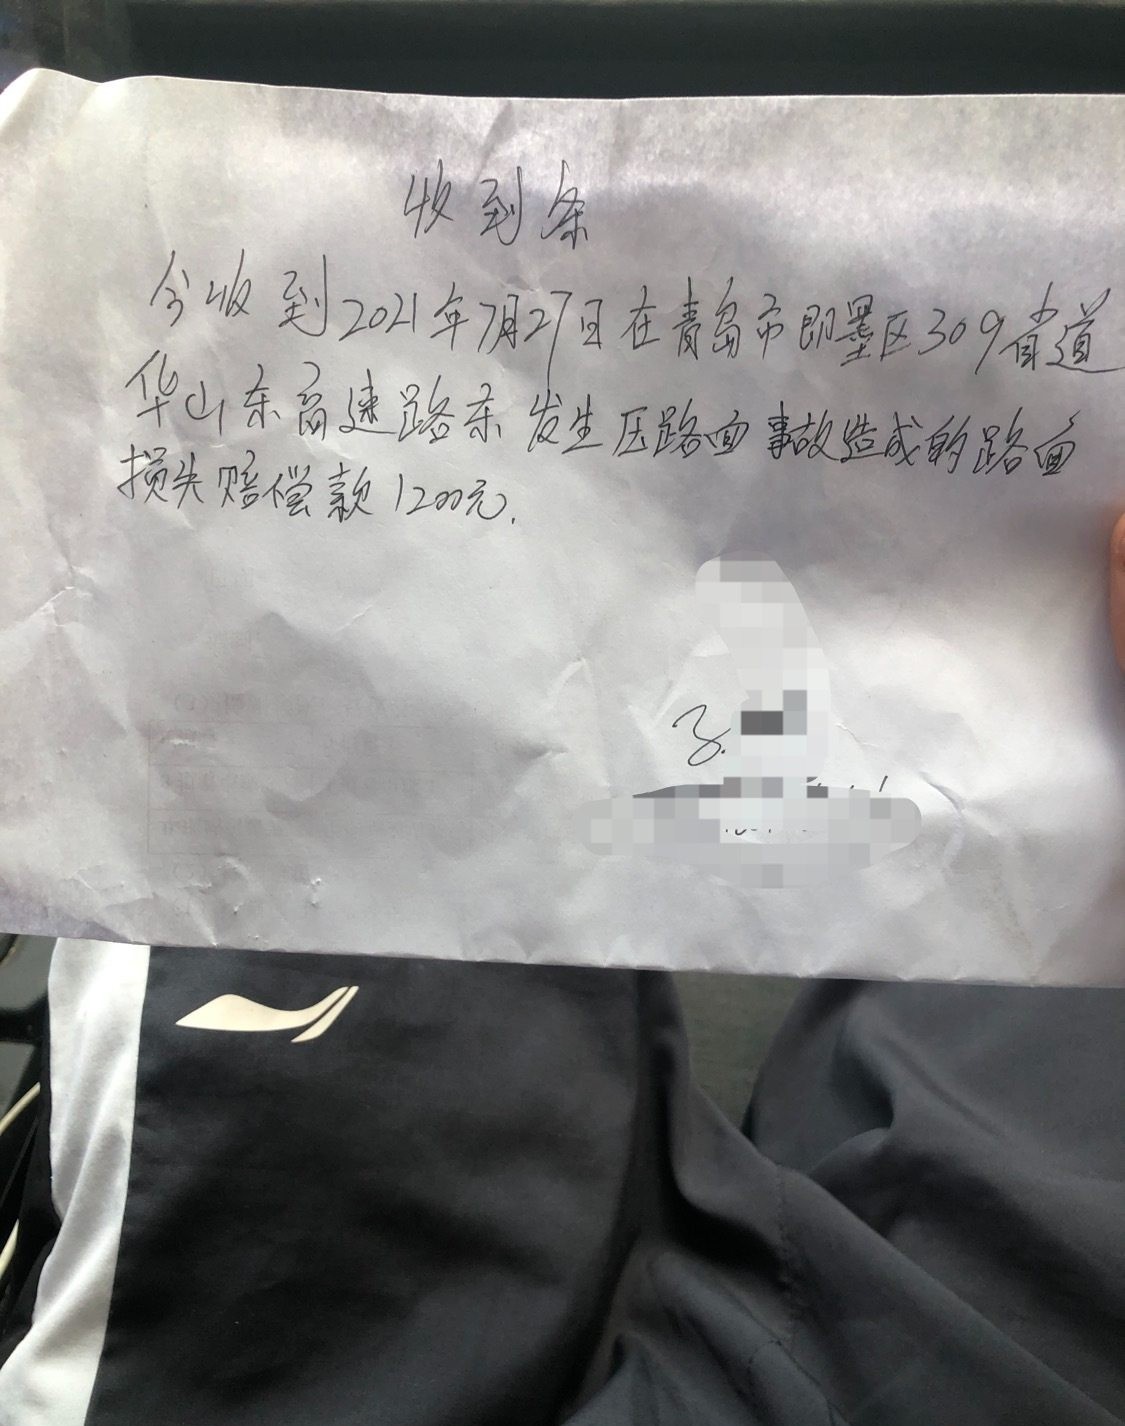 收到条
今收到2021年7月27日在青岛市即墨区309省道
华山东高速路东发生压路面事故造成的路面
损失赔偿款1200元.